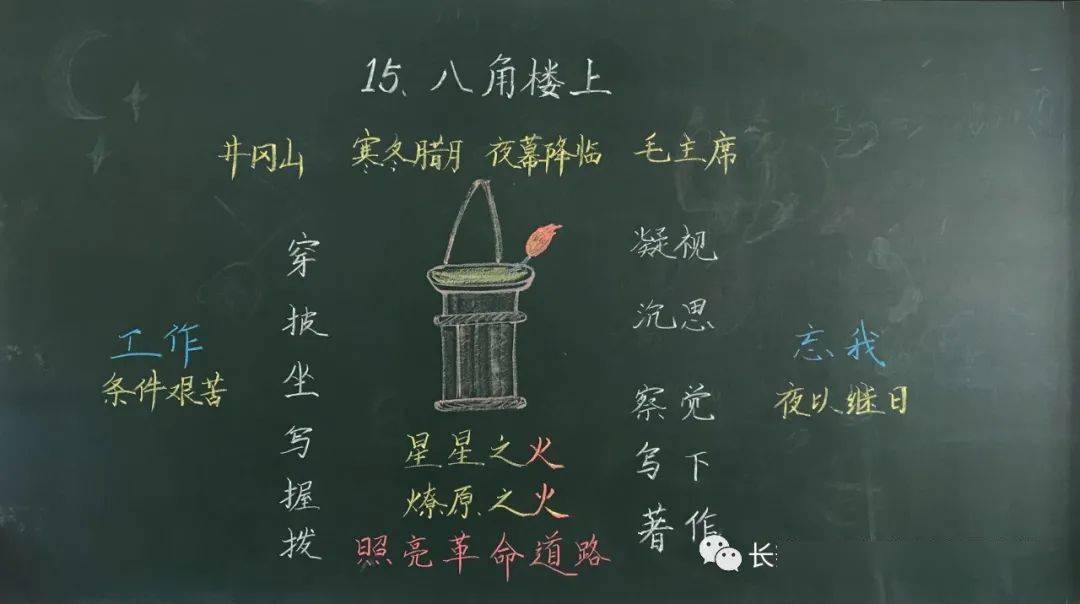 15、八角楼上
井冈山 寒冬腊月 夜幕降临 毛主席
穿
披
坐
写
握
拨
工作
条件艰苦
凝视
沉思
察觉
写下
著作
忘我
夜以继日
星星之火
燎原之火
照亮革命道路
长